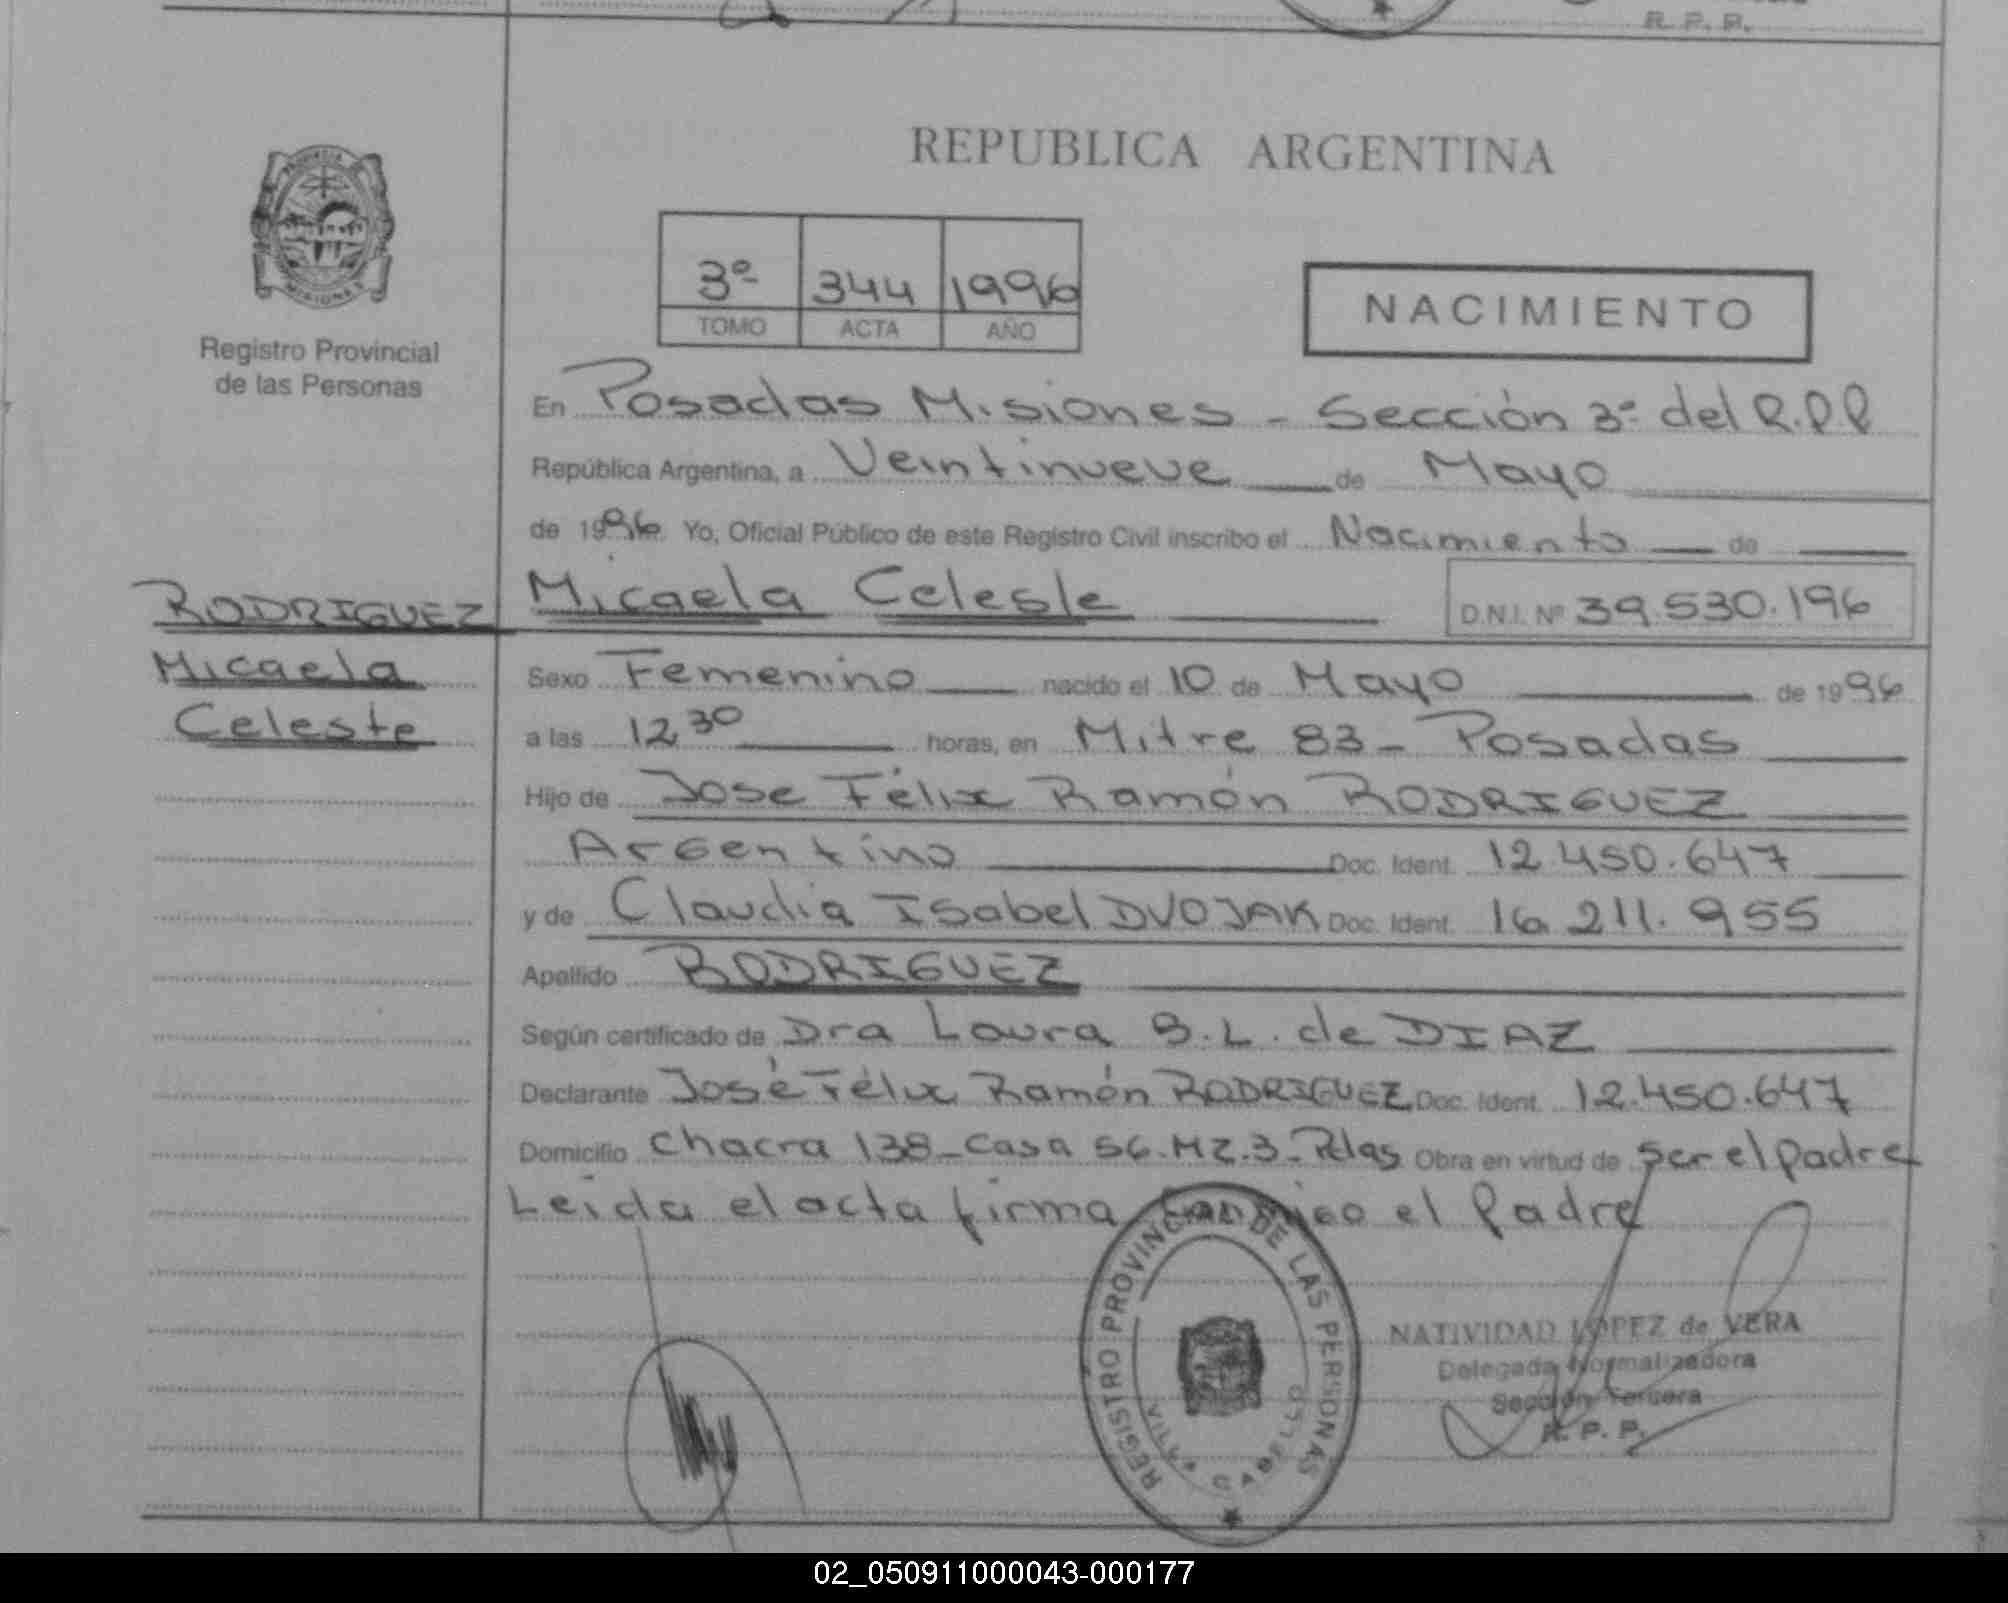 R. P. P.
PROVINCIA
MISIONES
Registro Provincial
de las Personas
REPUBLICA ARGENTINA
3º 344 1996
TOMO ACTA AÑO
NACIMIENTO
En Posadas Misiones - Sección 3ª del R.P.P
República Argentina, a Veintinueve de Mayo
de 1996 Yo, Oficial Público de este Registro Civil inscribo el Nacimiento de
RODRIGUEZ
Micaela
Celeste
Micaela Celeste D.N.I. Nº 39.530.196
Sexo Femenino nacido el 10 de Mayo de 1996
a las 12 30 horas, en Mitre 83 - Posadas
Hijo de Jose Félix Ramón RODRIGUEZ
Argentino Doc. Ident. 12.450.647
y de Claudia Isabel DVOJAK Doc. Ident. 16.211.955
Apellido RODRIGUEZ
Según certificado de Dra Laura B.L. de DIAZ
Declarante José Félix Ramón RODRIGUEZ Doc. Ident. 12.450.647
Domicilio Chacra 138-Casa 56-MZ.3-Pdas Obra en virtud de ser el padre
Leida el acta firma conmigo el Padre
REGISTRO PROVINCIAL DE LAS PERSONAS
VILLA CABELLO
NATIVIDAD LOPEZ de VERA
Delegada Normalizadora
Sección Tercera
R. P. P.
02_050911000043-000177